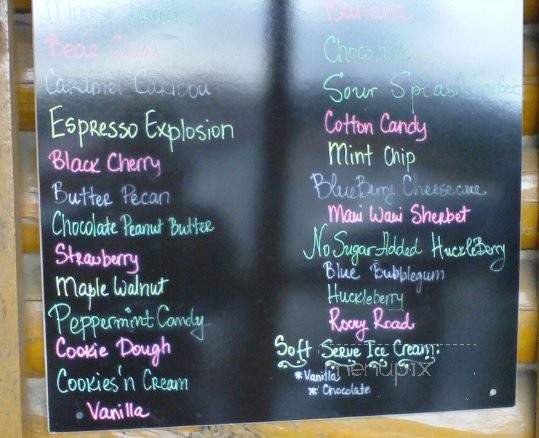 Moose
Bear Claw
Caramel Caribou
Espresso Explosion
Black Cherry
Butter Pecan
Chocolate Peanut Butter
Strawberry
Maple Walnut
Peppermint Candy
Cookie Dough
Cookies'n Cream
Vanilla
Banana
Chocolate
Sour Splash Sherbet
Cotton Candy
Mint Chip
BlueBerry Cheesecake
Maui Waui Sherbet
No Sugar Added HuckleBerry
Blue Bubblegum
Huckleberry
Rocky Road
Soft Serve Ice Cream:
*Vanilla
* Chocolate
menupix